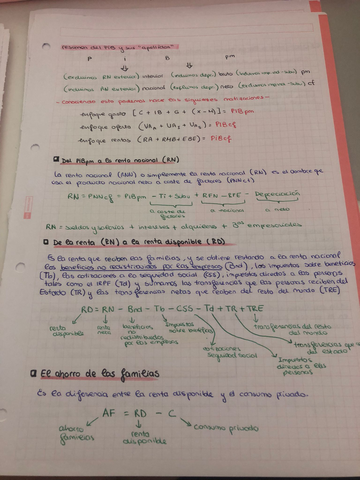 Resumen del PIB y sus "apellidos"
P i B pm
(excluimos RN exterior) interior (incluimos depr) bruto (incluimos imp ind - Subv) pm
(incluimos RN exterior) nacional (excluimos depr) neto (excluimos imp ind - Subv) cf
- Conociendo esto podemos hacer las siguientes matizaciones -
· enfoque gasto [C + IB + G + (X - M)] = PIBpm
· enfoque oferta (VA + VA + VA) = PIBcf
· enfoque rentas (RA + RHB + EBE) = PIBcf
Del PIBpm a la renta nacional (RN)
La renta nacional (RNN) o simplemente la renta nacional (RN) es el nombre que
usa el producto nacional neto a coste de factores (PNNcf)
RN = PNNcf = PIBpm - Ti + Subv + RFN - RFE - Depreciación
a coste de factores a nacional a neto
RN = sueldos y salarios + intereses + alquileres + Bºs empresariales
De la renta (RN) a la renta disponible (RD)
Es la renta que reciben las familias, y se obtiene restando a la renta nacional
los beneficios no redistribuidos por las empresas (Bnd), los impuestos sobre beneficios
(Tb), las cotizaciones a la seguridad social (CSS), impuestos directos a las personas
tales como el IRPF (Td) y sumamos las transferencias que las personas reciben del
Estado (TR) y las transferencias netas que reciben del resto del mundo (TRE)
RD = RN - Bnd - Tb - CSS - Td + TR + TRE
renta disponible
renta neta
beneficios no redistribuidos por las empresas
impuestos sobre beneficios
cotizaciones seguridad social
Impuestos directos a las personas
transferencias que del estado
transferencias del resto del mundo
El ahorro de las familias
Es la diferencia entre la renta disponible y el consumo privado.
AF = RD - C
ahorro familias
renta disponible
consumo privado